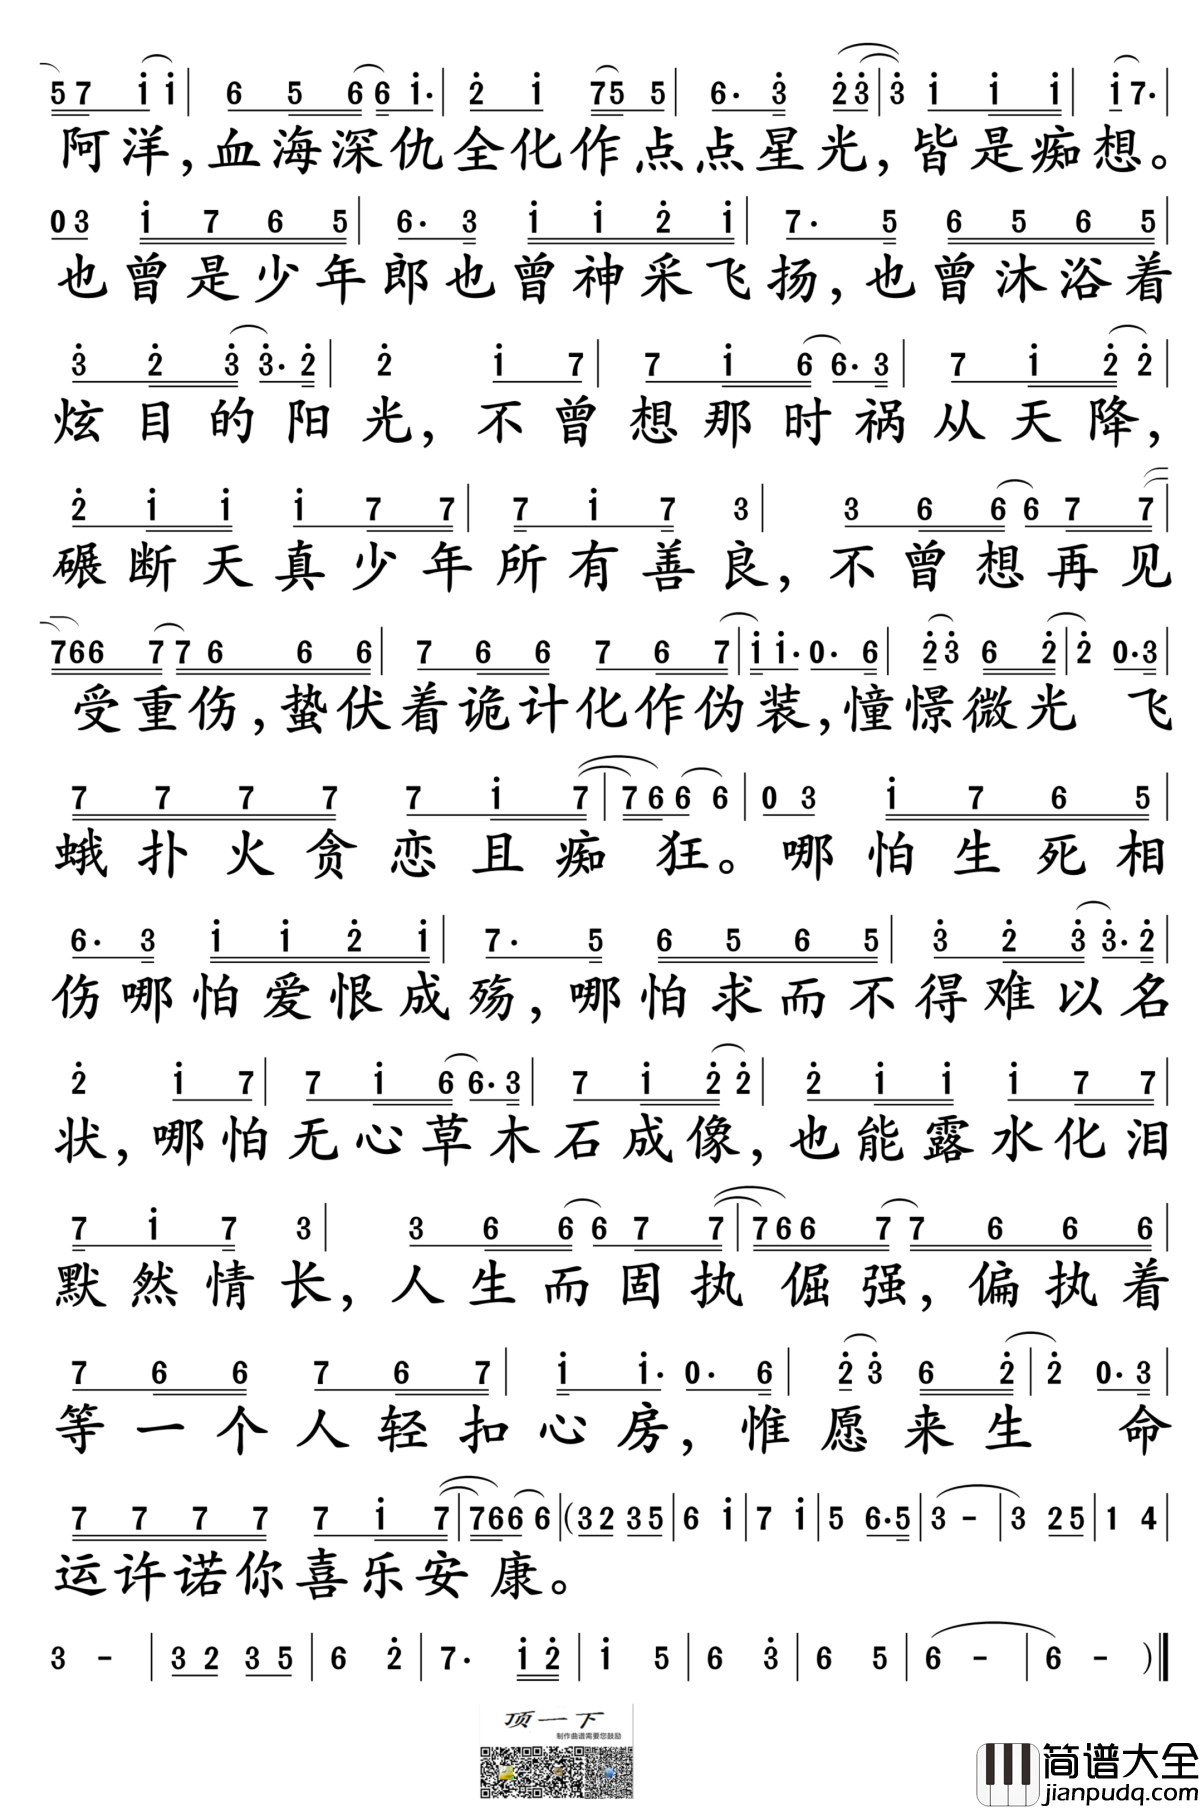 57 i i | 6 5 6 6 i· | 2 i 75 5 | 6· 3 2 3 | 3 i i i | i 7· |
阿洋，血海深仇全化作点点星光，皆是痴想。
0 3 i 7 6 5 | 6· 3 i i 2 i | 7· 5 6 5 6 5 |
也曾是少年郎也曾神采飞扬，也曾沐浴着
3 2 3 3· 2 | 2 i 7 | 7 i 6 6· 3 | 7 i 2 2 |
炫目的阳光，不曾想那时祸从天降，
2 i i i 7 7 | 7 i 7 3 | 3 6 6 6 7 7 |
碾断天真少年所有善良，不曾想再见
766 7 7 6 6 6 | 7 6 6 7 6 7 | i i· 0· 6 | 2 3 6 2 | 2 0· 3 |
受重伤，蛰伏着诡计化作伪装，憧憬微光 飞
7 7 7 7 7 i 7 | 7 6 6 6 | 0 3 i 7 6 5 |
蛾扑火贪恋且痴狂。哪怕生死相
6· 3 i i 2 i | 7· 5 6 5 6 5 | 3 2 3 3· 2 |
伤哪怕爱恨成殇，哪怕求而不得难以名
2 i 7 | 7 i 6 6· 3 | 7 i 2 2 | 2 i i i 7 7 |
状，哪怕无心草木石成像，也能露水化泪
7 i 7 3 | 3 6 6 6 7 7 | 7 6 6 7 7 6 6 6 |
默然情长，人生而固执倔强，偏执着
7 6 6 7 6 7 | i i· 0· 6 | 2 3 6 2 | 2 0· 3 |
等一个人轻扣心房，惟愿来生 命
7 7 7 7 7 i 7 | 766 6 | (32 35 | 6 i | 7 i | 5 6·5 | 3 - | 3 25 | 1 4 |
运许诺你喜乐安康。
3 - | 3 2 3 5 | 6 2 | 7· i 2 | i 5 | 6 3 | 6 5 | 6 - | 6 - )
顶一下
制作曲谱需要您鼓励
简谱大全
jianpudq.com